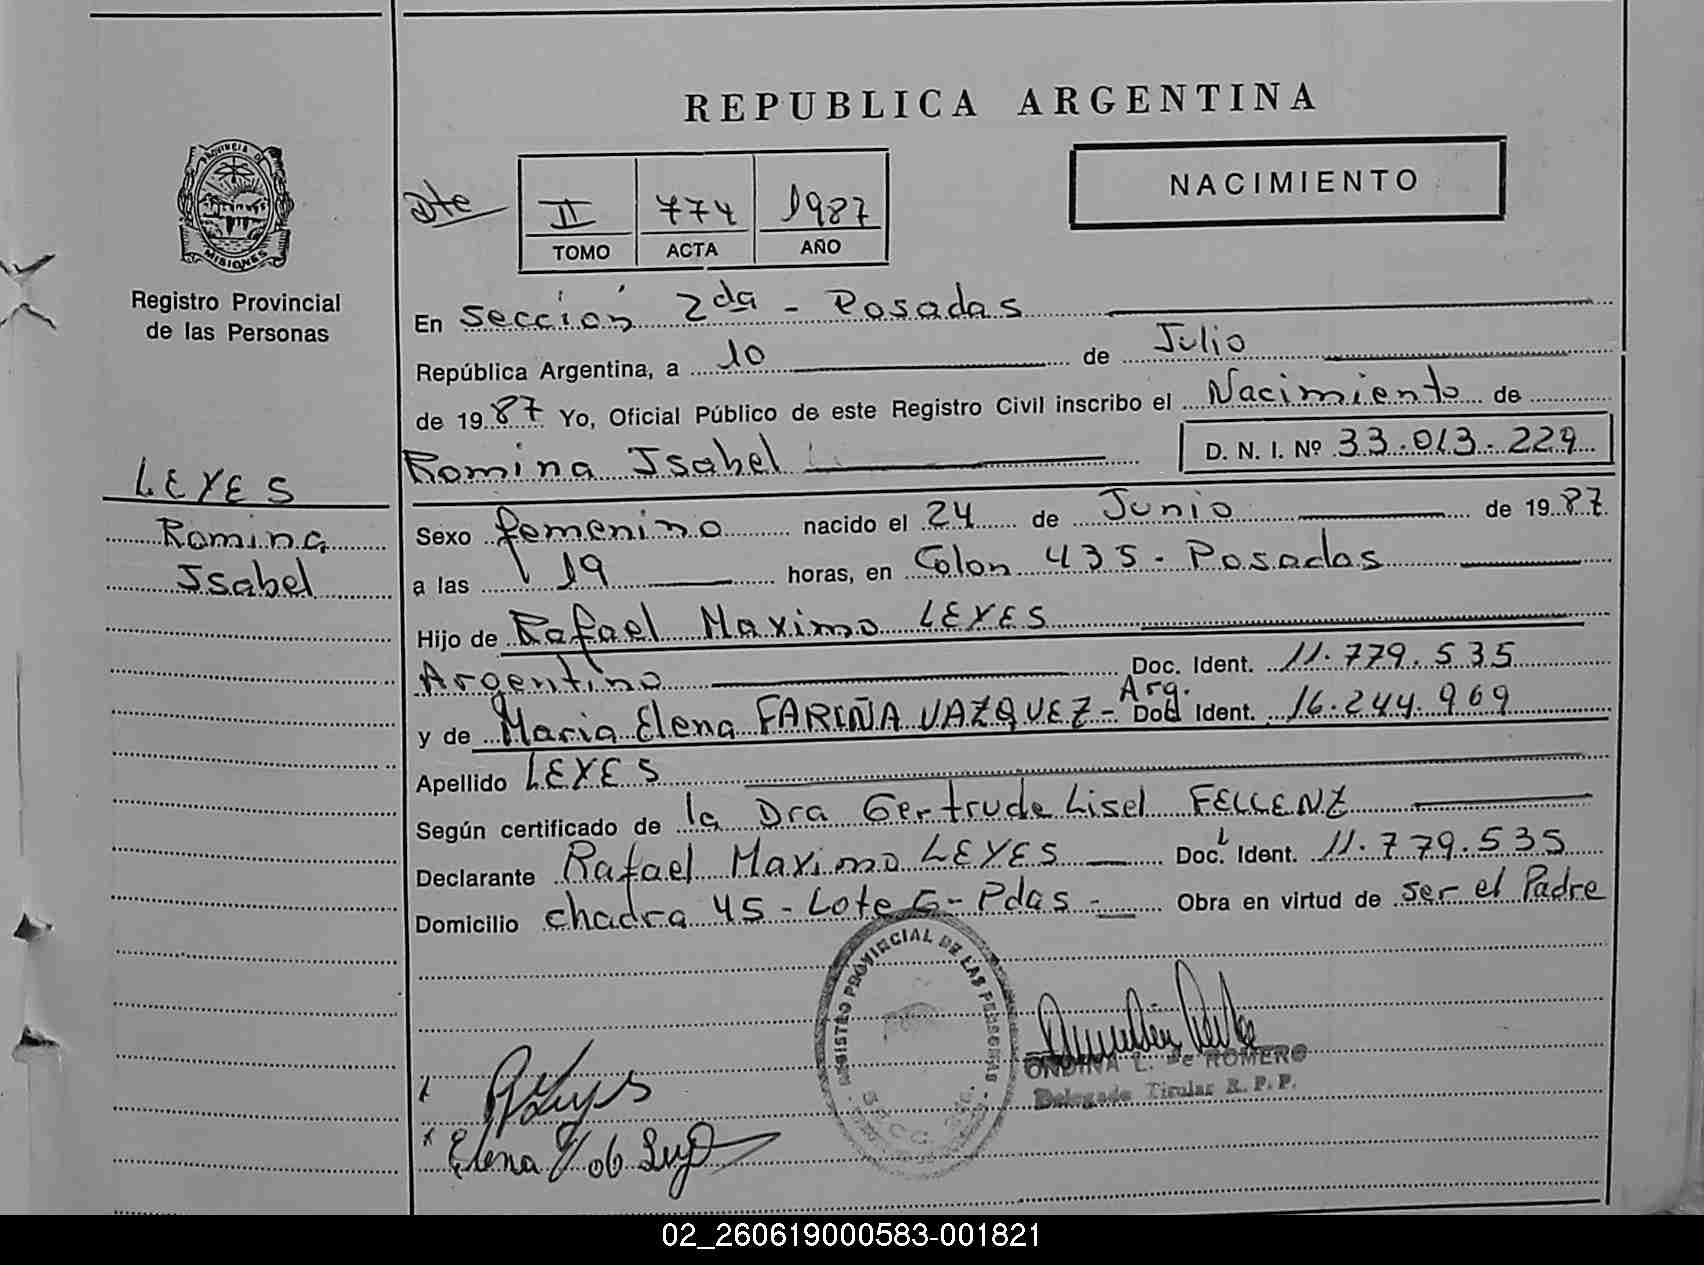 REPUBLICA ARGENTINA
NACIMIENTO
PROVINCIA DE
MISIONES
Registro Provincial
de las Personas
Dte
II 774 1987
TOMO ACTA AÑO
En Sección 2da - Posadas
República Argentina, a 10 de Julio
de 1987 Yo, Oficial Público de este Registro Civil inscribo el Nacimiento de
Romina Isabel D. N. I. Nº 33.013.229
LEYES
Romina
Isabel
Sexo femenino nacido el 24 de Junio de 1987
a las 19 horas, en Colon 435 - Posadas
Hijo de Rafael Maximo LEYES
Argentino Doc. Ident. 11.779.535
y de Maria Elena FARIÑA VAZQUEZ - Arg. Doc Ident. 16.244.969
Apellido LEYES
Según certificado de la Dra Gertrude Lisel FELLENZ
Declarante Rafael Maximo LEYES Doc. Ident. 11.779.535
Domicilio chacra 45 - Lote G - Pdas - Obra en virtud de ser el Padre
REGISTRO PROVINCIAL DE LAS PERSONAS
ONDINA L. de ROMERO
Delegado Titular R. P. P.
x
x Elena
02_260619000583-001821